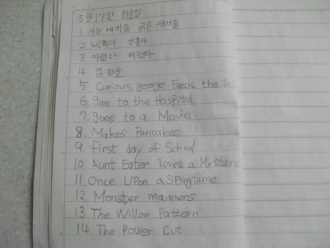 5월 17일 화요일
1 가는 새끼줄 굵은 새끼줄
2
3
4
5 Curious george Feeds the
6 Goes to the Hospital
7. Goes to a Movie
8. Makes Pancakes
9. first day of School
10 Aunt Eater loves a Mystery
11 Once Upon a Springtime
12 Monster manners
13 The Willow Pattern
14 The Power Cut